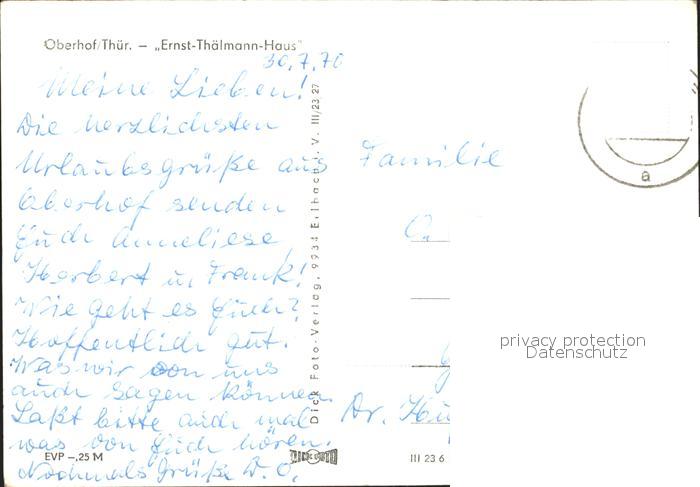 Oberhof/Thür. – „Ernst-Thälmann-Haus"
30.7.70
Meine Lieben!
Die herzlichsten
Urlaubsgrüße aus
Oberhof senden
Euch Anneliese,
Herbert u. Frank!
Wie geht es Euch?
Hoffentlich gut.
Was wir von uns
auch sagen können.
Laßt bitte auch mal
was von Euch hören.
Nochmals Grüße D. O.
EVP –,25 M
Dick Foto-Verlag, 9934 Erlbach i. V. III/23 27
Familie
O.
Dr.
III 23 6
a
privacy protection
Datenschutz